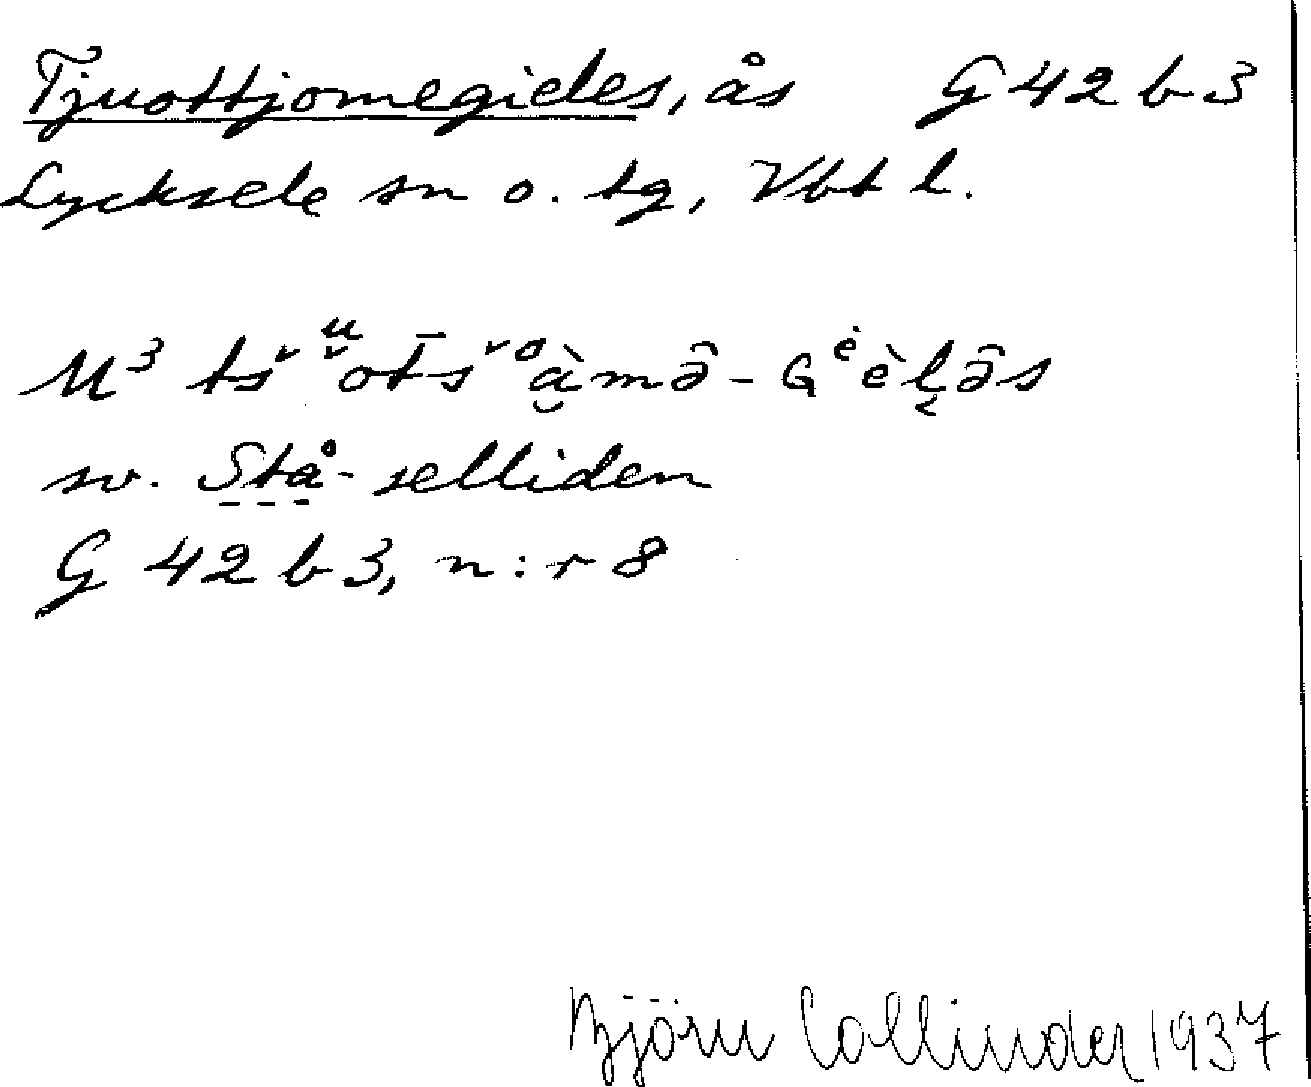 Tjuottjomegieles, ås G 42 b 3
Lycksele sn o. tg, Vbt l.
M³ tš ᵘ̯ot̄š ᵒà̯mə̑-Gᵉ̀èl̬ə̑s
sv. Stå-selliden
G 42 b 3, n:r 8
Björn Collinder 1937